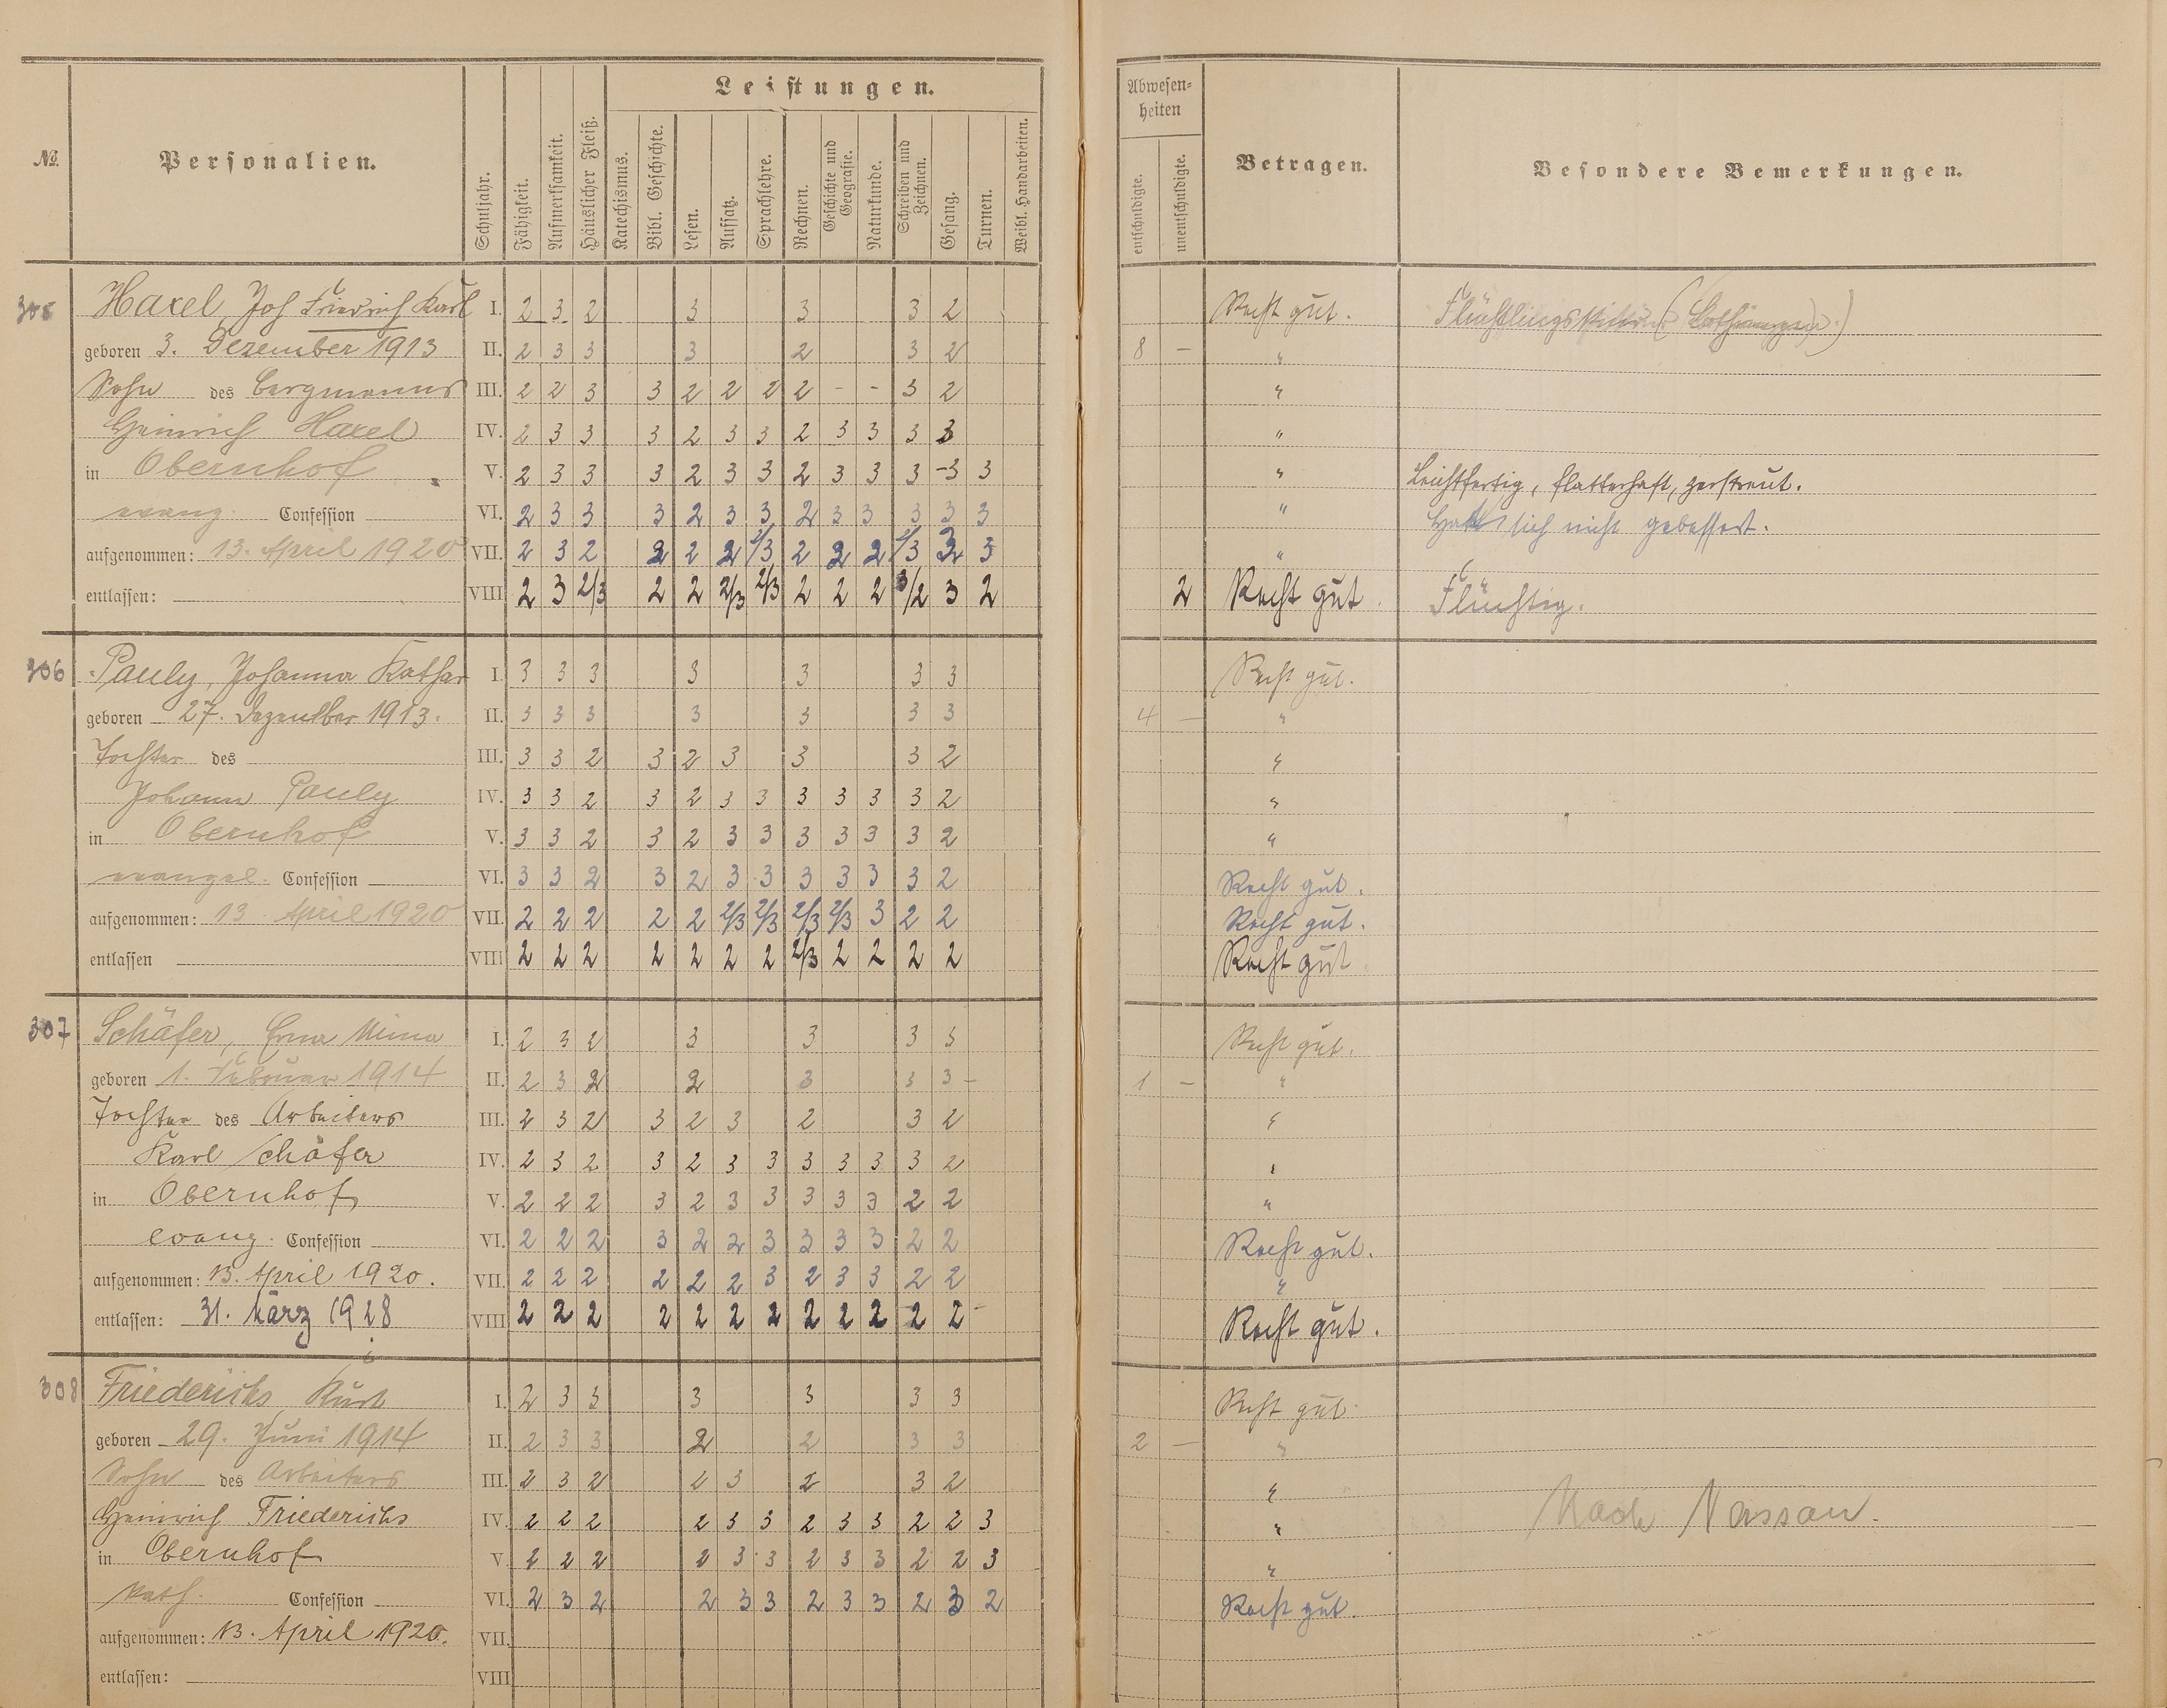 Leistungen.
Abwesen-
heiten
No.
Personalien.
Schuljahr.
Fähigkeit.
Aufmerksamkeit.
Häuslicher Fleiß.
Katechismus.
Bibl. Geschichte.
Lesen.
Aufsatz.
Sprachlehre.
Rechnen.
Geschichte und
Geografie.
Naturkunde.
Schreiben und
Zeichnen.
Gesang.
Turnen.
Weibl. Handarbeiten.
entschuldigte.
unentschuldigte.
Betragen.
Besondere Bemerkungen.
305 Haxel, Joh Friedrich Karl I. 2 3 2 3 3 3 2 Recht gut.
geboren 3. Dezember 1913 II. 2 3 3 3 2 3 2 8 — "
Sohn des Bergmanns III. 2 2 3 3 2 2 2 2 - - 3 2 "
Heinrich Haxel IV. 2 3 3 3 2 3 3 2 3 3 3 3 "
in Obernhof V. 2 3 3 3 2 3 3 2 3 3 3 -3 3 " Leichtfertig, flatterhaft, zerstreut.
evang. Confession VI. 2 3 3 3 2 3 3 2 3 3 3 3 3 " Hat sich nicht gebessert.
aufgenommen: 13. April 1920 VII. 2 3 2 2 2 2 2/3 2 2 2 2/3 3 3 "
entlassen: VIII 2 3 2/3 2 2 2/3 2/3 2 2 2 3/2 3 2 2 Recht gut. Flüchtig.
306 Pauly, Johanna Kathar I. 3 3 3 3 3 3 3 Recht gut.
geboren 27. Dezember 1913. II. 3 3 3 3 3 3 3 4 — "
Tochter des III. 3 3 2 3 2 3 3 3 2 "
Johann Pauly IV. 3 3 2 3 2 3 3 3 3 3 3 2 "
in Obernhof V. 3 3 2 3 2 3 3 3 3 3 3 2 "
evangel. Confession VI. 3 3 2 3 2 3 3 3 3 3 3 2 Recht gut.
aufgenommen: 13. April 1920 VII. 2 2 2 2 2 2/3 2/3 2/3 2/3 3 2 2 Recht gut.
entlassen VIII 2 2 2 2 2 2 2 2/3 2 2 2 2 Recht gut
307 Schäfer, Erna Mina I. 2 3 2 3 3 3 3 Recht gut.
geboren 1. Februar 1914 II. 2 3 2 2 3 3 3 — 1 — "
Tochter des Arbeiters III. 2 3 2 3 2 3 2 3 2 "
Karl Schäfer IV. 2 3 2 3 2 3 3 3 3 3 3 2 "
in Obernhof V. 2 2 2 3 2 3 3 3 3 3 2 2 "
evang. Confession VI. 2 2 2 3 2 2 3 3 3 3 2 2 Recht gut.
aufgenommen: 13. April 1920. VII. 2 2 2 2 2 2 3 2 3 3 2 2 "
entlassen: 31. März 1928 VIII 2 2 2 2 2 2 2 2 2 2 2 2 - Recht gut.
308 Friederichs Kurt I. 2 3 3 3 3 3 3 Recht gut.
geboren 29. Juni 1914 II. 2 3 3 2 2 3 3 2 — "
Sohn des Arbeiters III. 2 3 2 2 3 2 3 2 "
Heinrich Friederichs IV. 2 2 2 2 3 3 2 3 3 2 2 3 " Nach Nassau.
in Obernhof V. 2 2 2 2 3 3 2 3 3 2 2 3 "
kath. Confession VI. 2 3 2 2 3 3 2 3 3 2 3 2 Recht gut.
aufgenommen: 13. April 1920. VII.
entlassen: VIII